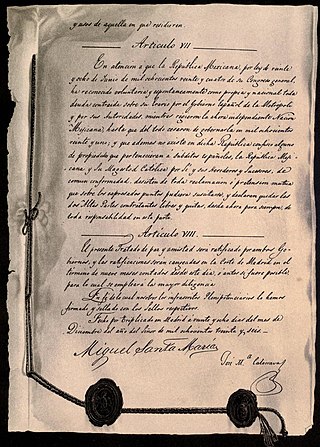 y usos de aquella en que residieren.
Articulo VII
En atencion a que la Republica Mexicana, por ley de veinte
y ocho de Junio de mil ochocientos veinte y cuatro de su Congreso general,
ha reconocido voluntaria y espontaneamente como propia y nacional toda
deuda contraida sobre su erario por el Gobierno Español de la Metropoli
y por sus autoridades mientras rigieron la ahora independiente Nacion
Mexicana, hasta que del todo cesaron de gobernarla en mil ochocientos
veinte y uno; y que ademas no existe en dicha Republica confisco alguno
de propiedades que pertenecieran a Subditos españoles, la Republica Meji-
cana, y Su Magestad Catolica por si y sus herederos y sucesores, de
comun conformidad, desisten de toda reclamacion o pretension mutua
que sobre los expresados puntos pudiera suscitarse, y declaran quedar las
dos Altas Partes contratantes libres y quitas, desde ahora para siempre, de
toda responsabilidad en esta parte.
Articulo VIII
El presente Tratado de paz y amistad sera ratificado por ambos Go-
biernos, y las ratificaciones seran cangeadas en la Corte de Madrid en el
termino de nueve meses contados desde este dia, o antes si fuere posible,
para lo cual se empleara la mayor diligencia.
En fe de lo cual nosotros los infrascritos Plenipotenciarios lo hemos
firmado y sellado con los Sellos respectivos.
Fecho por triplicado en Madrid a veinte y ocho dias del mes de
Diciembre del año del Señor de mil ochocientos treinta y seis.
Miguel Santa Maria
José M.ª Calatrava